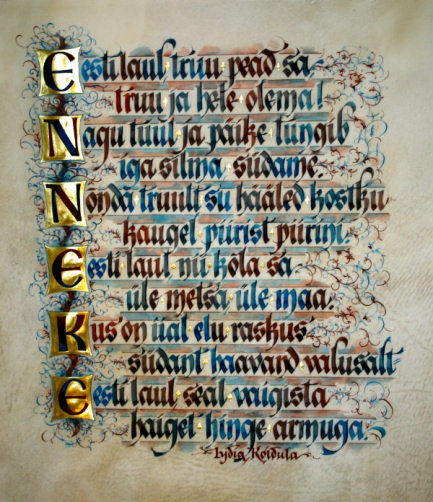 Eesti laul, truu pead sa
truu ja hele olema!
Nagu tuul ja päike tungib
iga silma, südame.
Nõnda truult su hääled kostku
kaugel piirist piirini.
Eesti laul, nii kõla sa
üle metsa, üle maa.
Kus on iial elu raskus
südant haavand valusalt
Eesti laul, seal vaigista
haiget hinge armuga.
Lydia Koidula